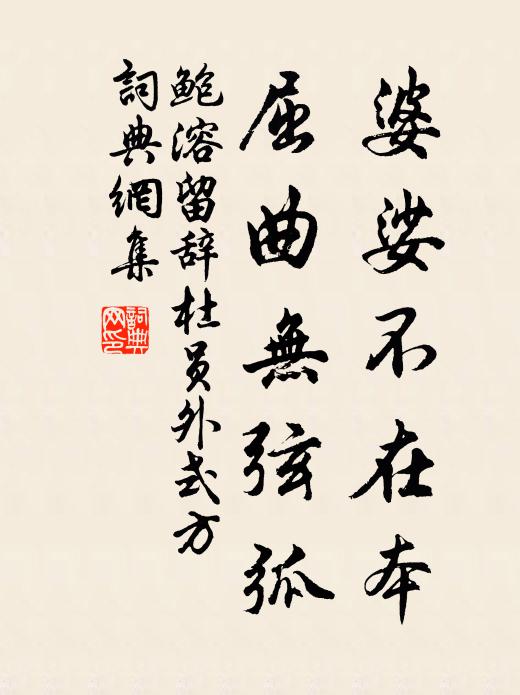 婆娑不在本
屈曲無弦弧
鮑溶留辞杜員外式方
詞典網集
詞典网印